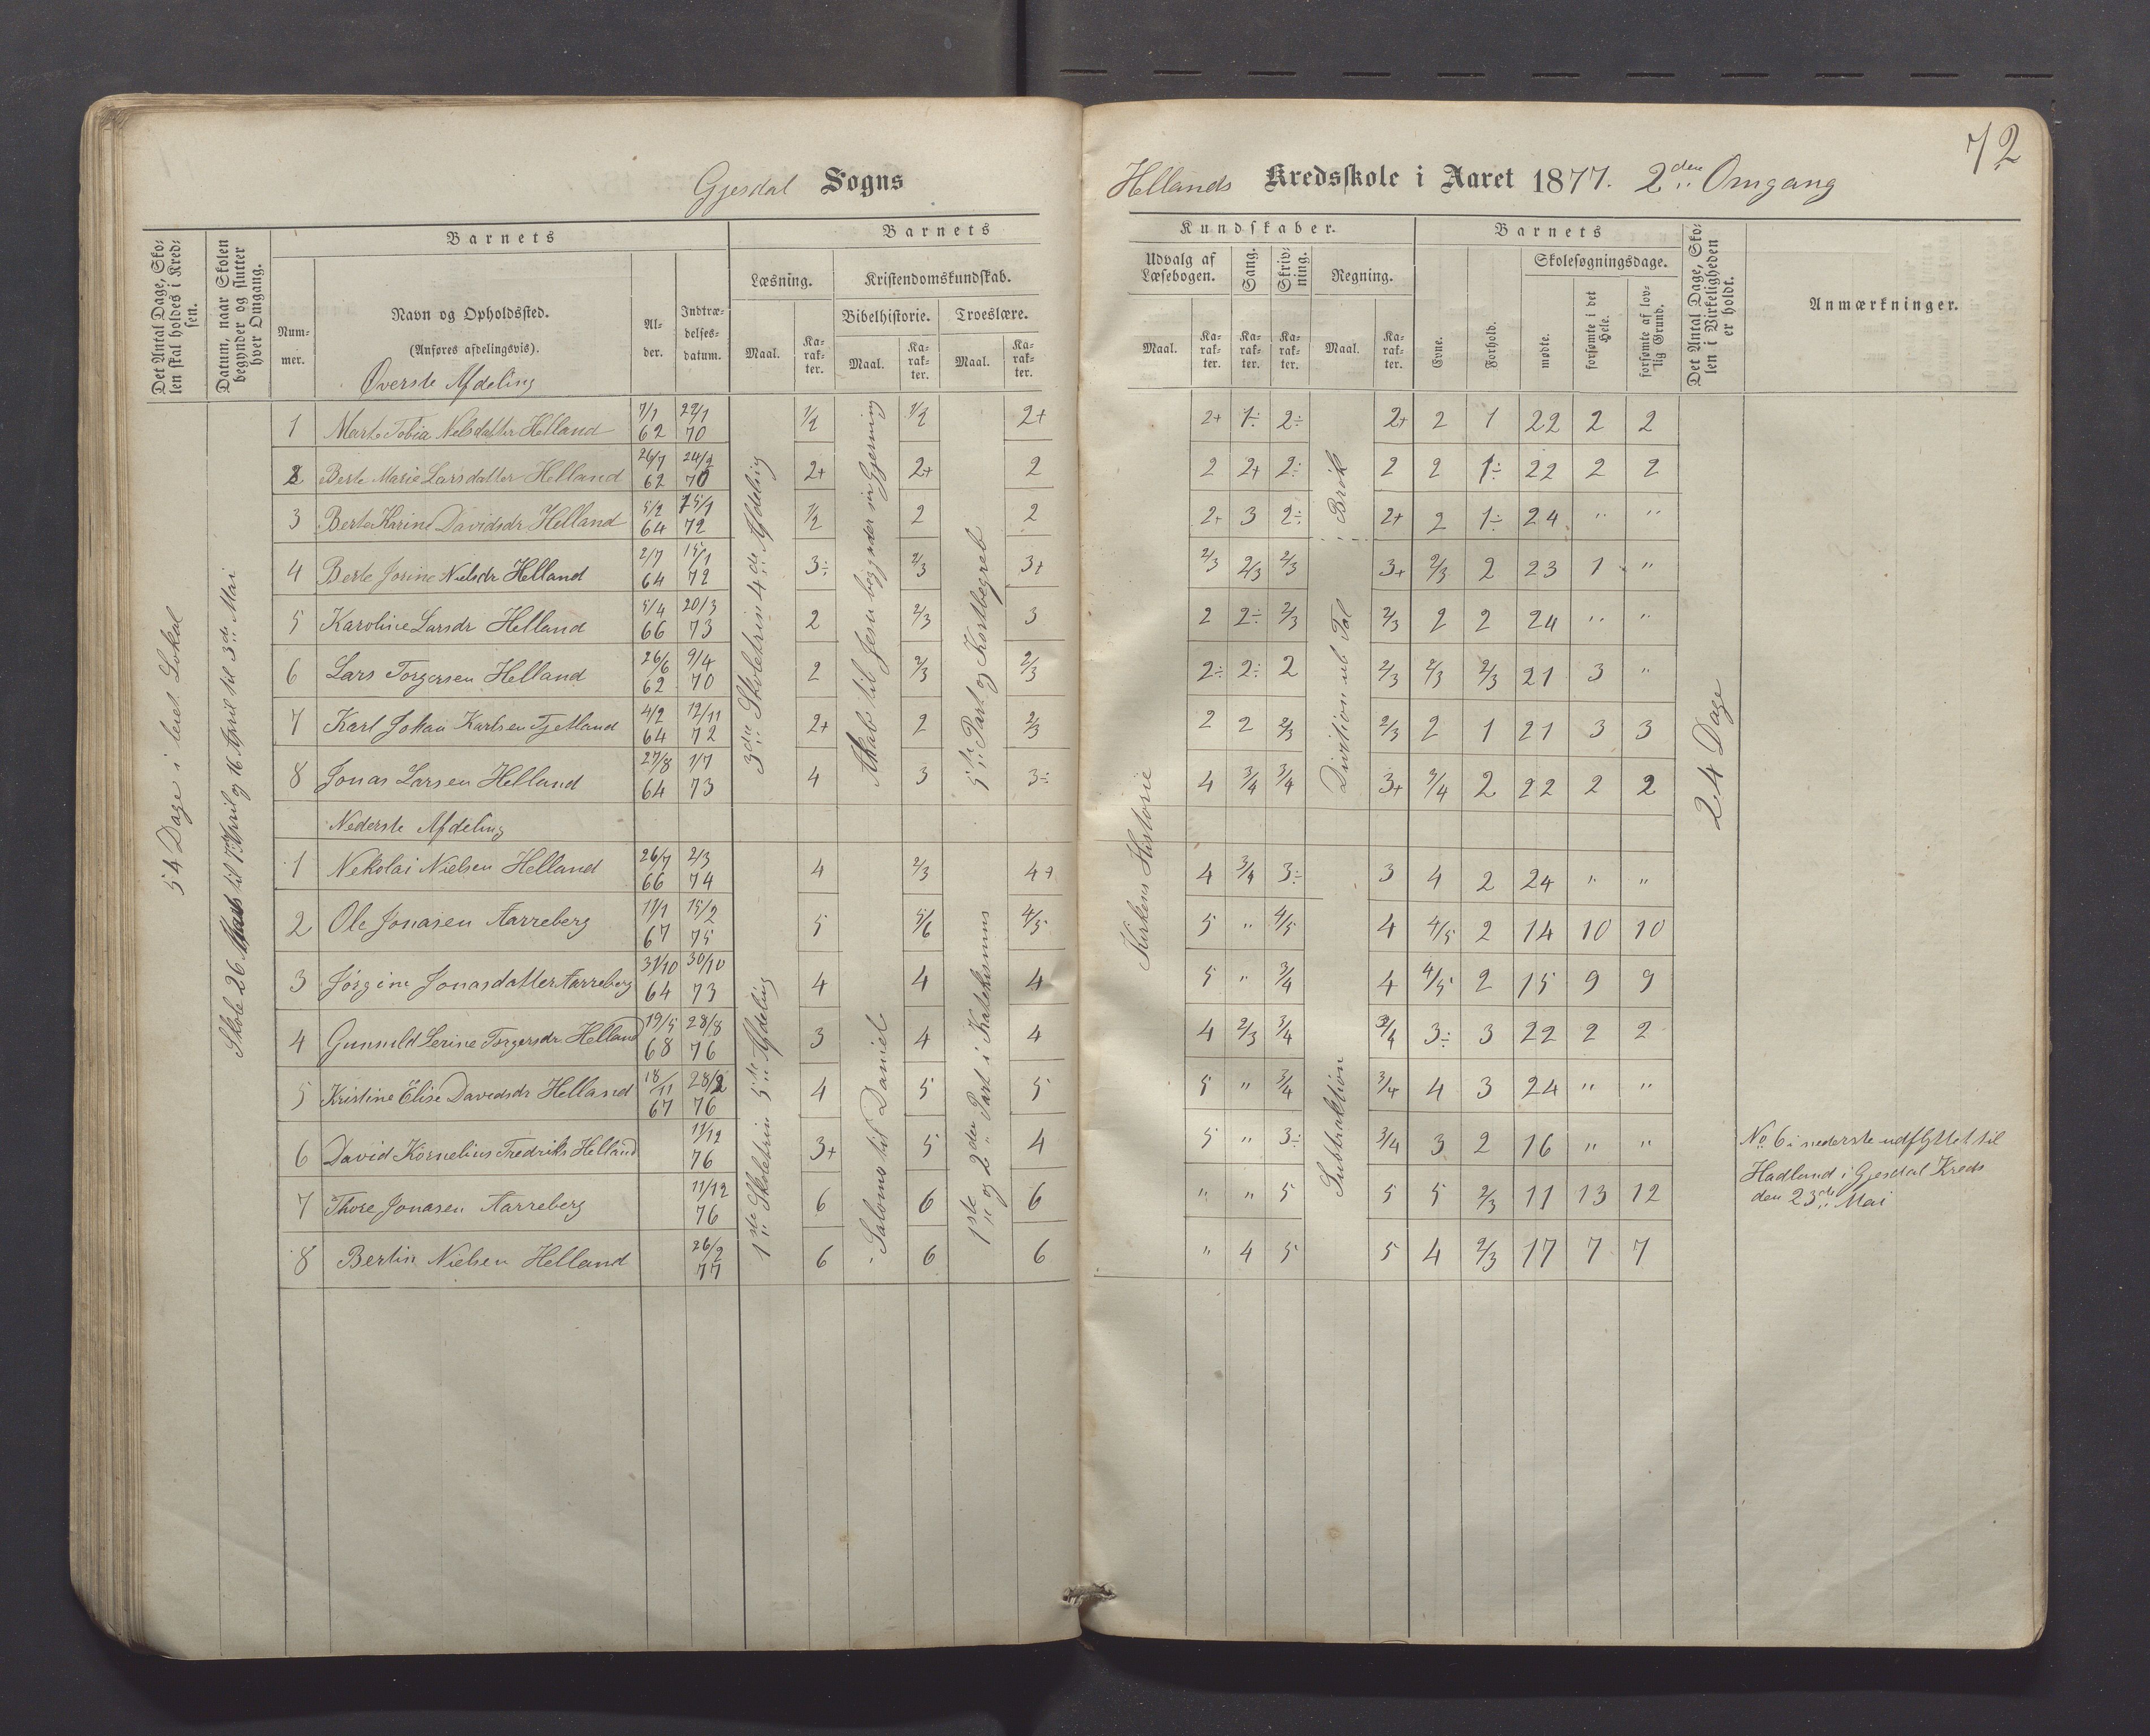 72
Gjesdal Sogns
Hellands Kredsskole i Aaret 1877. 2den Omgang
Det Antal Dage, Skolen skal holdes i Kredsen.
Datum, naar Skolen begynder og slutter hver Omgang.
Barnets
Nummer.
Navn og Opholdssted.
(Anføres afdelingsvis).
Alder.
Indtrædelsesdatum.
Barnets
Læsning.
Kristendomskundskab.
Bibelhistorie.
Troeslære.
Maal.
Karakter.
Maal.
Karakter.
Maal.
Karakter.
Kundskaber.
Udvalg af Læsebogen.
Sang.
Skrivning.
Regning.
Maal.
Karakter.
Karakter.
Karakter.
Maal.
Karakter.
Barnets
Evne.
Forhold.
Skolesøgningsdage.
mødte.
forsømte i det Hele.
forsømte af lovlig Grund.
Det Antal Dage, Skolen i Virkeligheden er holdt.
Anmærkninger.
54 Dage i leiet Lokal
Skole 26 Marts til 7 April og 16 April til 3de Mai
3die Skoletrin 4de Afdeling
Akab til Jesu begynder sin Gjerning
5te Part og Kortbegreb
Kirkens Historie
Brøk
Division ub Tal
24 Dage
Øverste Afdeling
1 Marte Tobia Nelsdatter Helland 7/1 62 22/1 70 1/2 1/2 2+ 2+ 1÷ 2÷ 2+ 2 1 22 2 2
2 Berte Marie Larsdatter Helland 26/7 62 24/2 70 2+ 2+ 2 2 2+ 2÷ 2 2 1÷ 22 2 2
3 Berte Karine Davidsdr Helland 5/2 64 15/1 72 1/2 2 2 2+ 3 2÷ 2+ 2 1÷ 24 " "
4 Berte Josine Nielsdr Helland 2/7 64 15/1 72 3÷ 2/3 3+ 2/3 2/3 2/3 3+ 2/3 2 23 1 "
5 Karoline Larsdr Helland 5/4 66 20/3 73 2 2/3 3 2 2÷ 2/3 2/3 2 2 24 " "
6 Lars Torgersen Helland 26/6 62 9/4 70 2 2/3 2/3 2÷ 2÷ 2 2/3 2/3 2/3 21 3 "
7 Karl Johan Karlsen 4/2 64 12/11 72 2+ 2 2/3 2 2 2/3 2/3 2 1 21 3 3
8 Jonas Larsen Helland 27/8 64 1/7 73 4 3 3÷ 4 3/4 3/4 3+ 3/4 2 22 2 2
Nederste Afdeling
1ste Skoletrin 5te Afdeling
Salomo til Daniel
1ste og 2den Part i Katekismus
Subtraktion
1 Nekolai Nielsen Helland 26/7 66 2/3 74 4 2/3 4+ 4 3/4 3÷ 3 4 2 24 " "
2 Ole Jonasen Aarreberg 11/1 67 15/2 75 5 5/6 4/5 5 " 4/5 4 4/5 2 14 10 10
3 Jørgine Jonasdatter Aarreberg 31/10 64 30/10 73 4 4 4 5 " 3/4 4 4/5 2 15 9 9
4 Gunnuld Serine Torgersdr. Helland 19/5 68 28/8 76 3 4 4 4 2/3 3/4 3/4 3÷ 3 22 2 2
5 Kristine Elise Davidsdr Helland 18/11 67 28/2 76 4 5 5 5 " 3/4 3/4 4 3 24 " "
6 David Kornelius Fredriks Helland 11/12 76 3+ 5 4 5 " 3÷ 3/4 3 2 16 " "
7 Thore Jonasen Aarreberg 11/12 76 6 6 6 " " 5 5 5 2/3 11 13 12
8 Bertin Nielsen Helland 26/2 77 6 6 6 " 4 5 5 4 2/3 17 7 7
No 6 i nederste udflyttet til
Hadland i Gjesdal Kreds
den 23de Mai